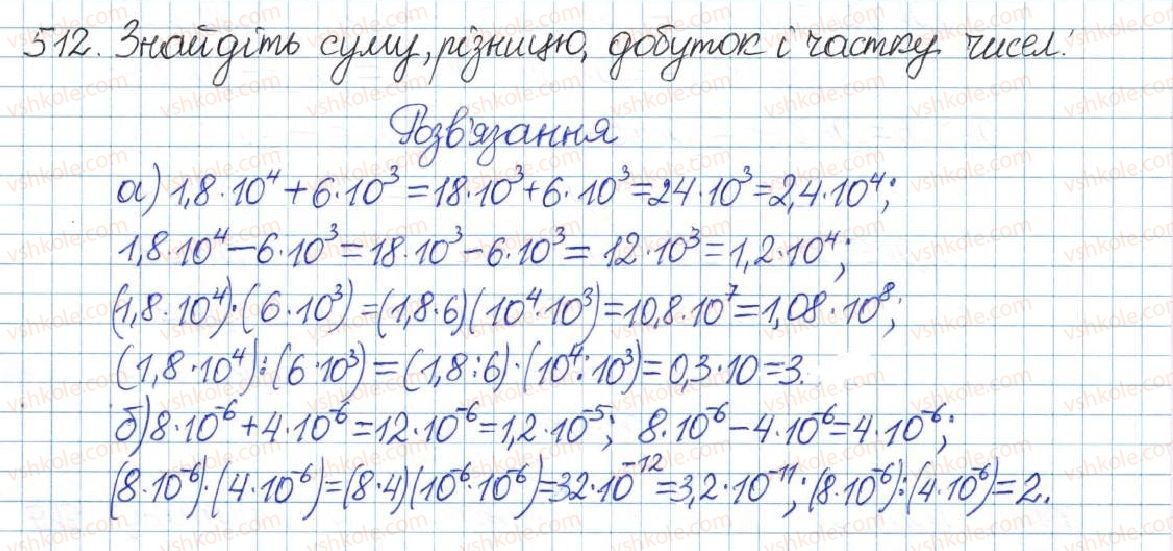 512. Знайдіть суму, різницю, добуток і частку чисел:
Розв'язання
а) 1,8·10⁴ + 6·10³ = 18·10³ + 6·10³ = 24·10³ = 2,4·10⁴;
1,8·10⁴ − 6·10³ = 18·10³ − 6·10³ = 12·10³ = 1,2·10⁴;
(1,8·10⁴)·(6·10³) = (1,8·6)(10⁴·10³) = 10,8·10⁷ = 1,08·10⁸;
(1,8·10⁴):(6·10³) = (1,8:6)·(10⁴:10³) = 0,3·10 = 3.
б) 8·10⁻⁶ + 4·10⁻⁶ = 12·10⁻⁶ = 1,2·10⁻⁵; 8·10⁻⁶ − 4·10⁻⁶ = 4·10⁻⁶;
(8·10⁻⁶)·(4·10⁻⁶) = (8·4)(10⁻⁶·10⁻⁶) = 32·10⁻¹² = 3,2·10⁻¹¹; (8·10⁻⁶):(4·10⁻⁶) = 2.